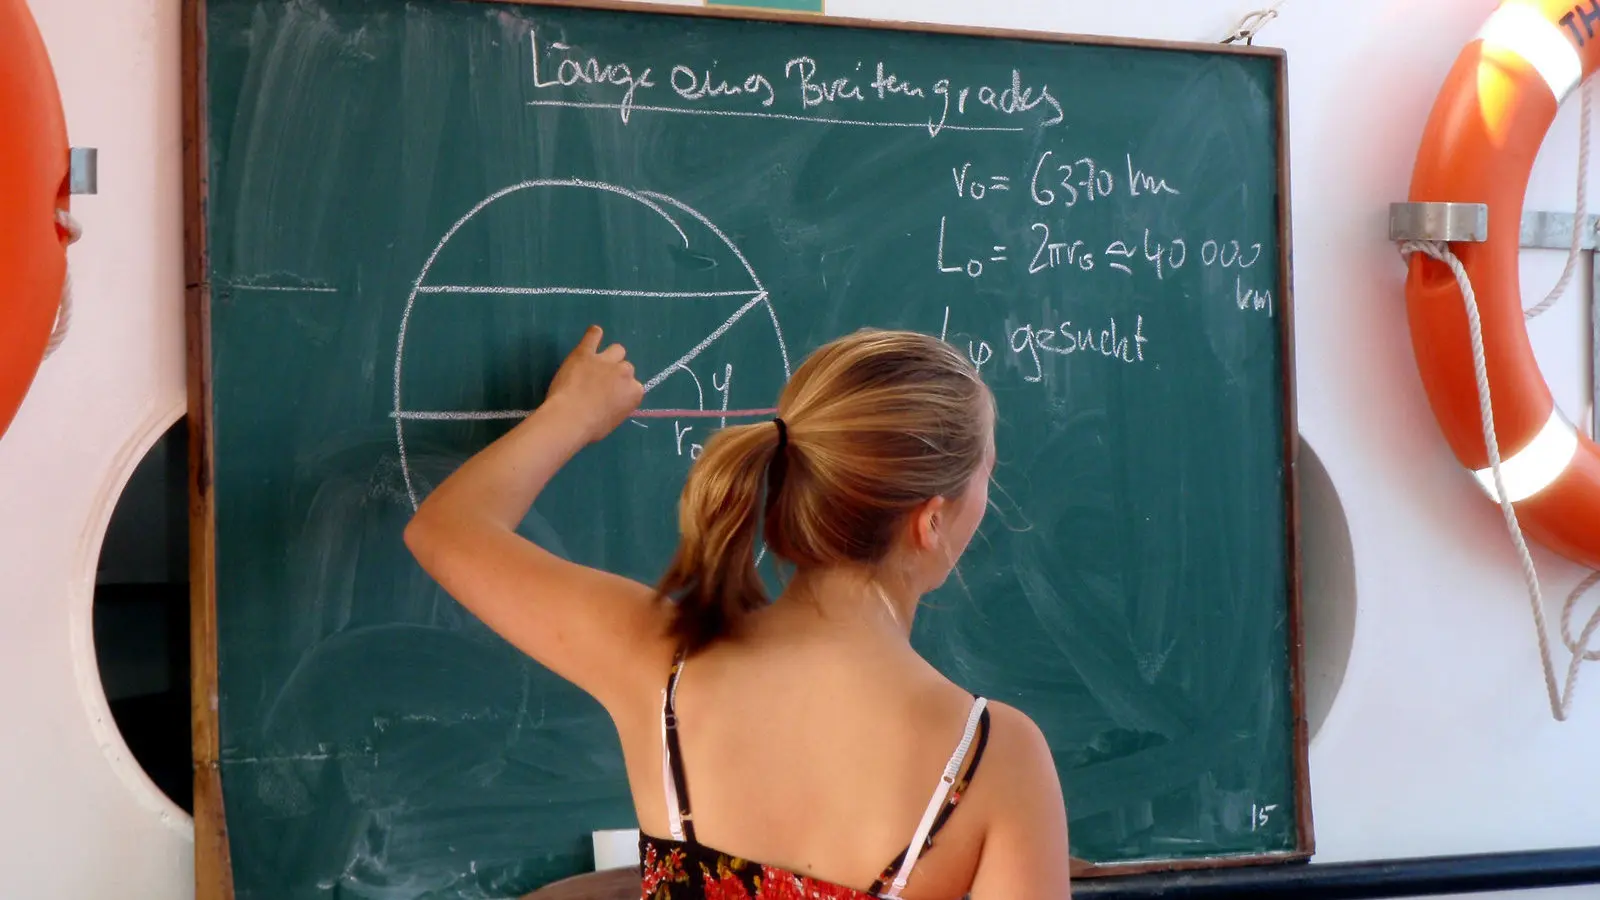 Länge eines Breitengrades
r₀ = 6370 km
L₀ = 2πr₀ ≈ 40 000
km
Lφ gesucht
φ
r₀
15
TH